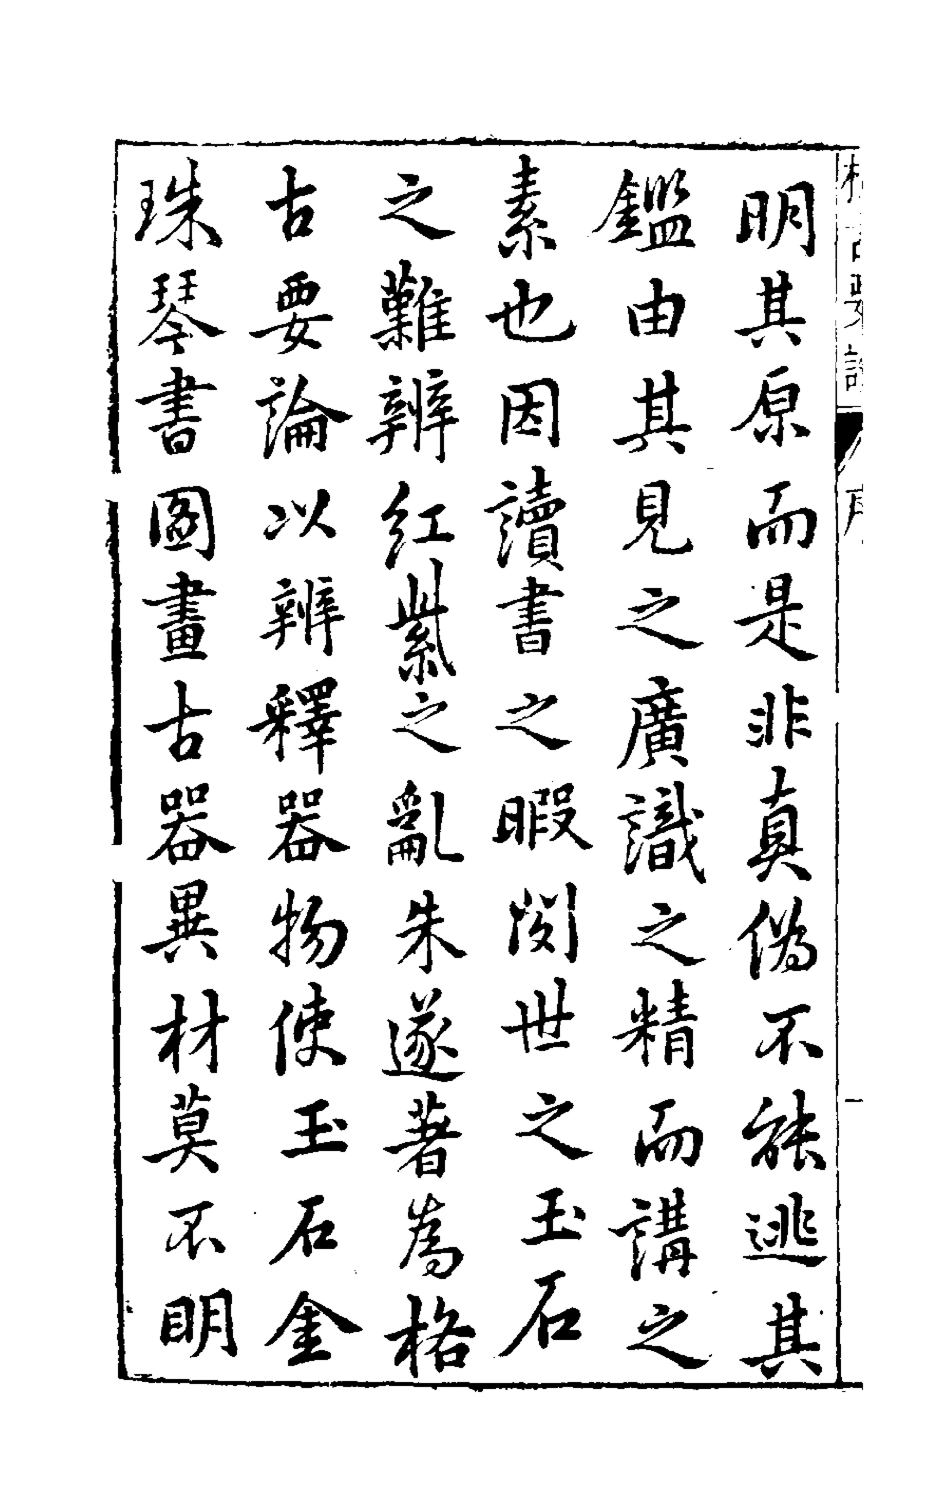 明其原而是非真偽不能逃其
鑑由其見之廣識之精而講之
素也因讀書之暇閔世之玉石
之難辨紅紫之亂朱遂著為格
古要論以辨釋器物使玉石金
珠琴書圖畫古器異材莫不明